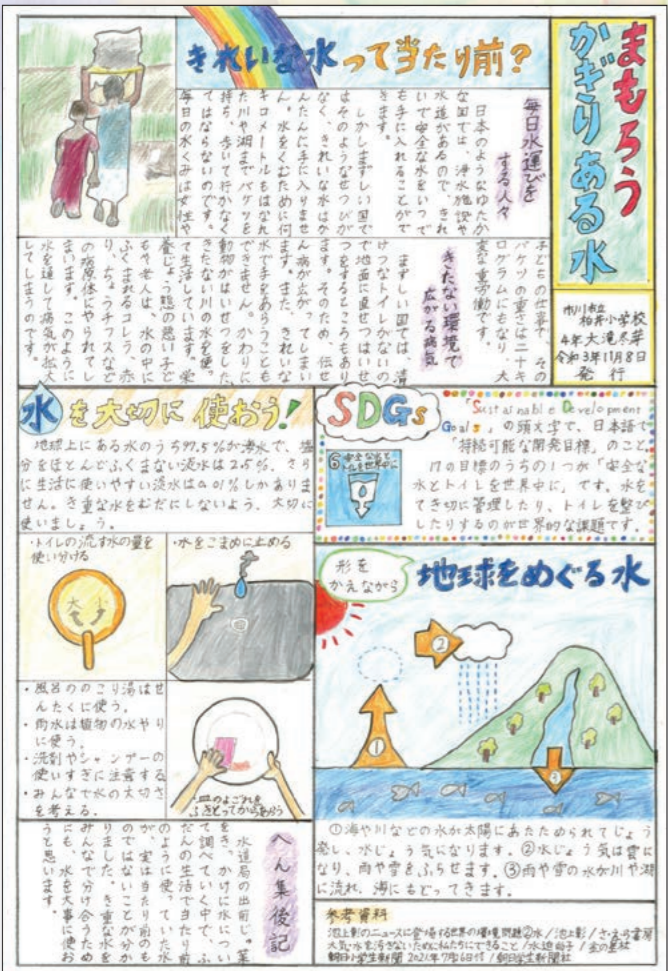 まもろう
かぎりある水
市川市立
柏井小学校
4年 大滝冬芽
令和3年11月8日
発行
きれいな水って当たり前?
毎日水運びを
する人々
日本のようなゆたか
な国では、浄水施設や
水道があるので、きれ
いで安全な水をいつで
も手に入れることがで
きます。
しかしまずしい国で
はそのようなせつびが
なく、きれいな水はか
んたんに手に入りませ
ん。水をくむために何
キロメートルもはなれ
た川や湖までバケツを
持ち、歩いて行かなく
てはならないのです。
毎日の水くみは女性や
子どもの仕事で、その
バケツの重さは二十キ
ログラムにもなり、大
変な重労働です。
きたない環境で
広がる病気
まずしい国では、清
けつなトイレがないの
で地面に直せつはいせ
つをするところもあり
ます。そのため、伝せ
ん病が広がってしまい
ます。また、きれいな
水で手をあらうことも
できません。かわりに
動物がはいせつをした
きたない川の水を使っ
て生活しています。栄
養じょう態の悪い子ど
もや老人は、水の中に
ふくまれるコレラ、赤
り、ちょうチフスなど
の病原体にやられてし
まいます。このように
水を通して病気が拡大
してしまうのです。
水を大切に使おう!
地球上にある水のうち97.5%が海水で、塩
分をほとんどふくまない淡水は2.5%。さら
に生活に使いやすい淡水は0.01%しかありま
せん。き重な水をむだにしないよう、大切に
使いましょう。
・トイレの流す水の量を
使い分ける
大 小
・水をこまめに止める
・風呂ののこり湯はせ
んたくに使う。
・雨水は植物の水やり
に使う。
・洗剤やシャンプーの
使いすぎに注意する
・みんなで水の大切さ
を考える。
・皿のよごれを
ふきとってからあらう
SDGs
「Sustainable Development
Goals」の頭文字で、日本語で
「持続可能な開発目標」のこと。
17の目標のうちの1つが「安全な
水とトイレを世界中に」です。水を
てき切に管理したり、トイレを整び
したりするのが世界的な課題です。
6 安全な水と
トイレを世界中に
形を
かえながら
地球をめぐる水
①
②
③
①海や川などの水が太陽にあたためられてじょう
発し、水じょう気になります。②水じょう気は雲に
なり、雨や雪をふらせます。③雨や雪の水が川や湖
に流れ、海にもどってきます。
へん集後記
水道局の出前じゅ業
をきっかけに水につい
て調べていく中で、ふ
だんの生活で当たり前
のように使っていた水
が、実は当たり前のも
のではないことが分か
りました。き重な水を
みんなで分け合うため
にも、水を大事に使お
うと思います。
参考資料
池上彰のニュースに登場する世界の環境問題②水/池上彰/さ・え・ら書房
大気・水を汚さないために私たちにできること/水迫尚子/金の星社
朝日小学生新聞 2021年7月6日付/朝日学生新聞社